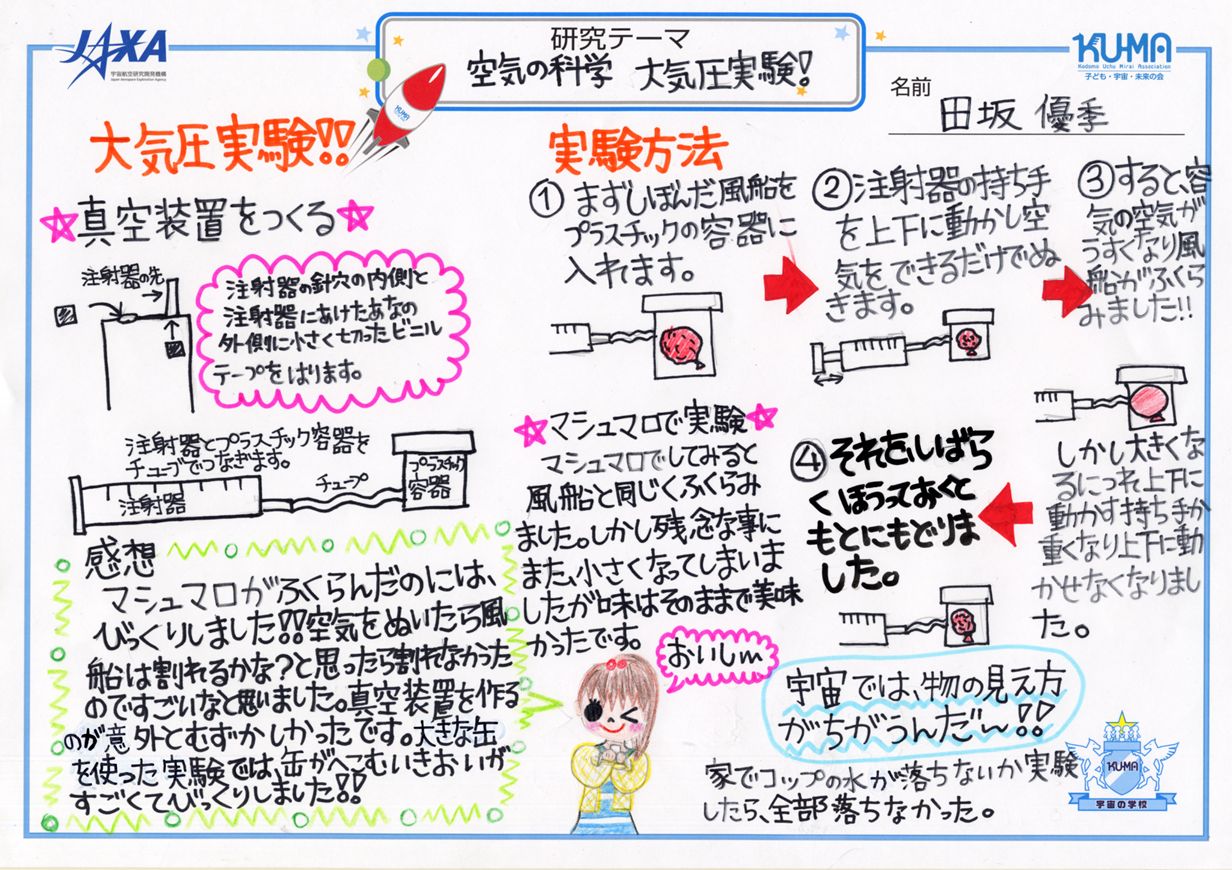 JAXA
宇宙航空研究開発機構
Japan Aerospace Exploration Agency
研究テーマ
空気の科学 大気圧実験!
KUMA
KU-MA
Kodomo Uchu Mirai Association
子ども・宇宙・未来の会
名前
田坂 優季
大気圧実験!!
☆真空装置をつくる☆
注射器の先
注射器の針穴の内側と
注射器にあけたあなの
外側に小さく切ったビニル
テープをはります。
注射器とプラスチック容器を
チューブでつなぎます。
注射器
チューブ
プラスチック
容器
感想
マシュマロがふくらんだのには、
びっくりしました!!空気をぬいたら風
船は割れるかな?と思ったら割れなかった
のですごいなと思いました。真空装置を作る
のが意外とむずかしかったです。大きな缶
を使った実験では、缶がへこむいきおいが
すごくてびっくりしました!!
実験方法
① まずしぼんだ風船を
プラスチックの容器に
入れます。
②注射器の持ち手
を上下に動かし空
気をできるだけでぬ
きます。
③すると、容
気の空気が
うすくなり風
船がふくら
みました!!
しかし大きくな
るにつれ上下に
動かす持ち手か
重くなり上下に動
かせなくなりまし
た。
④それをしばら
くほうっておくと
もとにもどりま
した。
☆マシュマロで実験☆
マシュマロでしてみると
風船と同じくふくらみ
ました。しかし残念な事に
また、小さくなってしまいま
したが味はそのままで美味
かったです。
おいしm
宇宙では、物の見え方
がちがうんだ〜!!
家でコップの水が落ちないか実験
したら、全部落ちなかった。
KU-MA
宇宙の学校